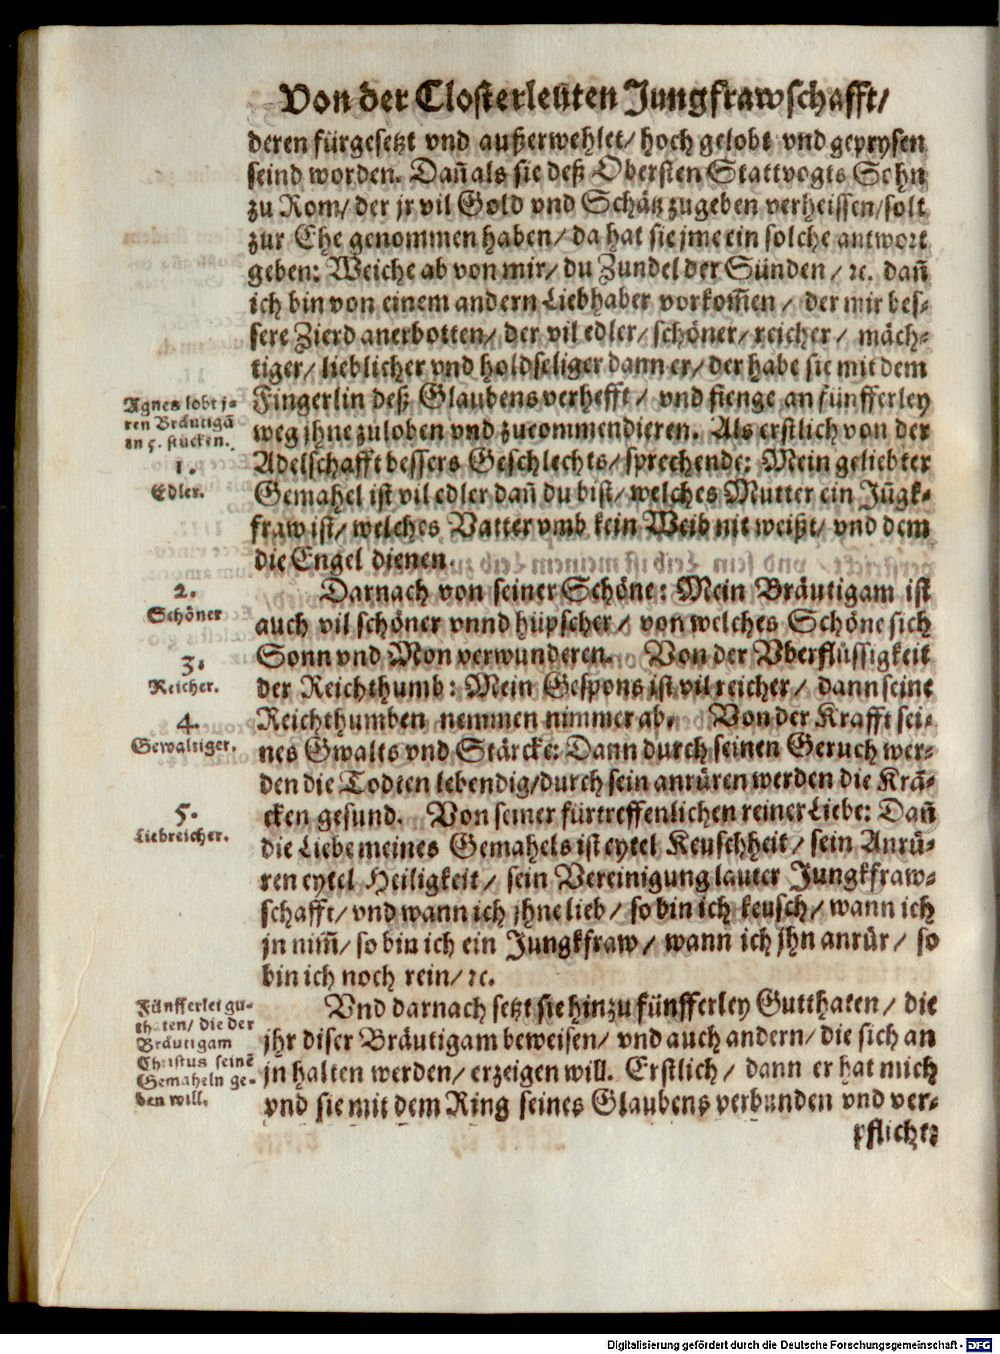 Von der Closterleüten Jungfrawschafft/
deren fürgesetzt vnd außerwehlet/ hoch gelobt vnd geprysen
seind worden. Dañ als sie deß Obersten Stattvogts Sohn
zu Rom/ der jr vil Gold vnd Schätz zugeben verheissen/ solt
zur Ehe genommen haben/ da hat sie jme ein solche antwort
geben: Weiche ab von mir/ du Zundel der Sünden/ ꝛc. dañ
ich bin von einem andern Liebhaber vorkom̃en/ der mir bes-
sere Zierd anerbotten/ der vil edler/ schöner/ reicher/ mäch-
tiger/ lieblicher vnd holdseliger dann er/ der habe sie mit dem
Agnes lobt je-
ren Bräutigā
in 5. stucken.
Fingerlin deß Glaubens verhefft/ vnd fienge an fünfferley
weg jhne zuloben vnd zucommendieren. Als erstlich von der
1.
Edler.
Adelschafft bessers Geschlechts/ sprechende: Mein geliebter
Gemahel ist vil edler dañ du bist/ welches Mutter ein Jũgk-
fraw ist/ welches Vatter vmb kein Weib nit weißt/ vnd dem
die Engel dienen.
2.
Schöner
Darnach von seiner Schöne: Mein Bräutigam ist
auch vil schöner vnnd hüpscher/ von welches Schöne sich
3.
Reicher.
Sonn vnd Mon verwunderen. Von der Vberflüssigkeit
der Reichthumb: Mein Gespons ist vil reicher/ dann seine
4.
Gewaltiger.
Reichthumben nemmen nimmer ab. Von der Krafft sei-
nes Gwalts vnd Stärcke: Dann durch seinen Geruch wer-
den die Todten lebendig/ durch sein anrüren werden die Krā-
5.
Liebreicher.
cken gesund. Von seiner fürtreffenlichen reiner Liebe: Dañ
die Liebe meines Gemahels ist eytel Keuschheit/ sein Anrü-
ren eytel Heiligkeit/ sein Vereinigung lauter Jungkfraw-
schafft/ vnd wann ich jhne lieb/ so bin ich keusch/ wann ich
jn nim̃/ so bin ich ein Jungkfraw/ wann ich jhn anrür/ so
bin ich noch rein/ ꝛc.
Fünfferlei gu-
thaten/ die der
Bräutigam
Christus seinē
Gemaheln ge-
ben will.
Vnd darnach setzt sie hinzu fünfferley Gutthaten/ die
jhr diser Bräutigam beweisen/ vnd auch andern/ die sich an
jn halten werden/ erzeigen will. Erstlich/ dann er hat mich
vnd sie mit dem Ring seines Glaubens verbunden vnd ver-
pflicht:
Digitalisierung gefördert durch die Deutsche Forschungsgemeinschaft - DFG